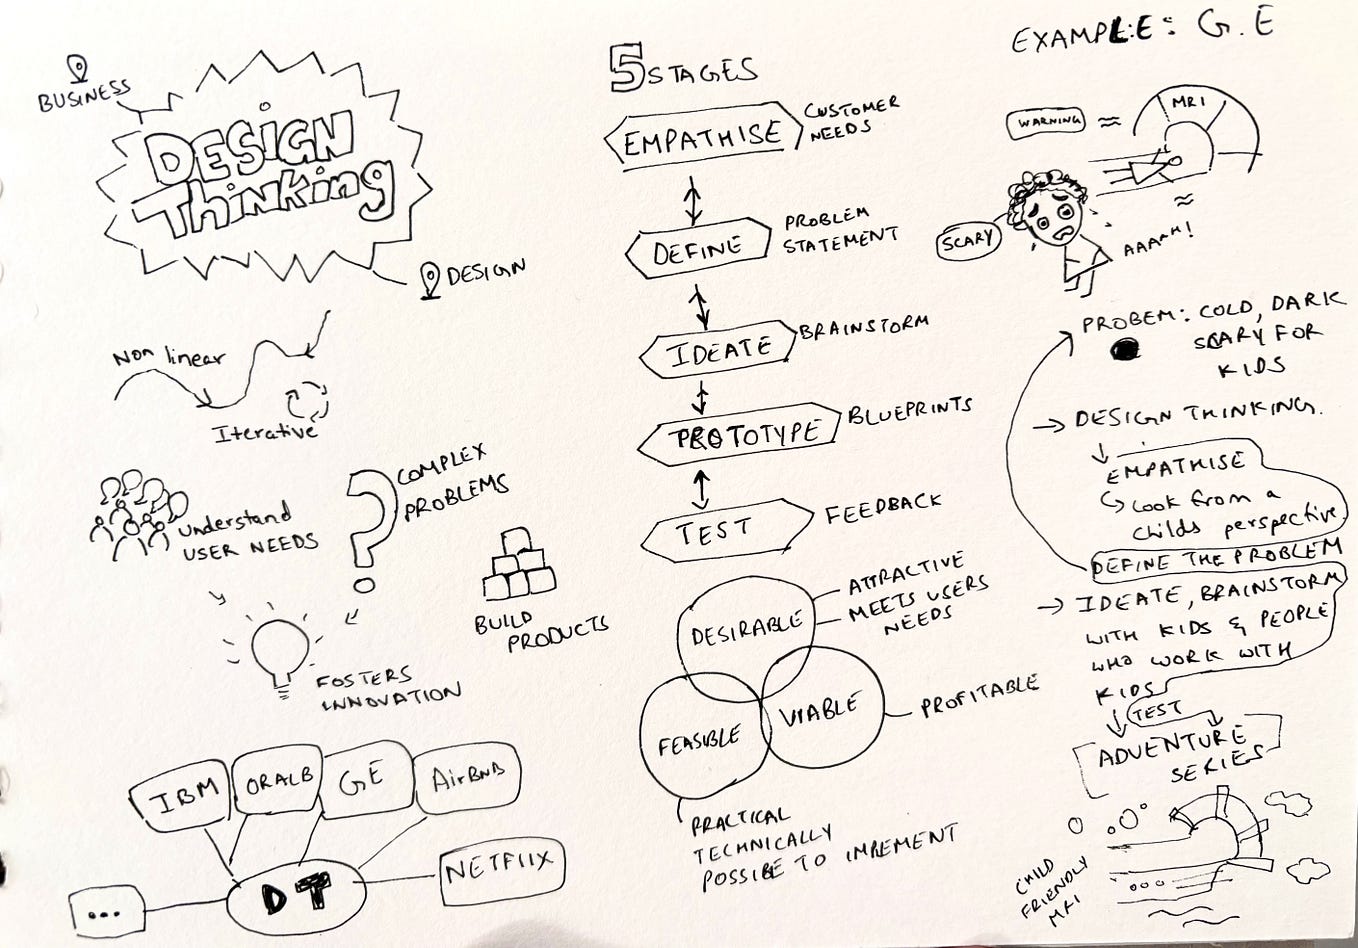 BUSINESS
DESIGN
Thinking
DESIGN
Non linear
Iterative
understand
USER NEEDS
COMPLEX
PROBLEMS
BUILD
PRODUCTS
FOSTERS
INNOVATION
IBM
ORALB
GE
AirBnB
NETFLIX
DT
...
5 STAGES
EMPATHISE
CUSTOMER
NEEDS
DEFINE
PROBLEM
STATEMENT
IDEATE
BRAINSTORM
PROTOTYPE
BLUEPRINTS
TEST
FEEDBACK
DESIRABLE
ATTRACTIVE
MEETS USERS
NEEDS
FEASIBLE
VIABLE
PROFITABLE
PRACTICAL
TECHNICALLY
POSSIBE TO IMPEMENT
EXAMPLE: G.E
WARNING
MRI
SCARY
AAAAH!
PROBEM: COLD, DARK
SCARY FOR
KIDS
→ DESIGN THINKING.
EMPATHISE
Look from a
childs perspective
DEFINE THE PROBLEM
→ IDEATE, BRAINSTORM
WITH KIDS & PEOPLE
WHO WORK WITH
KIDS
TEST
ADVENTURE
SERIES
CHILD
FRIENDLY
MRI